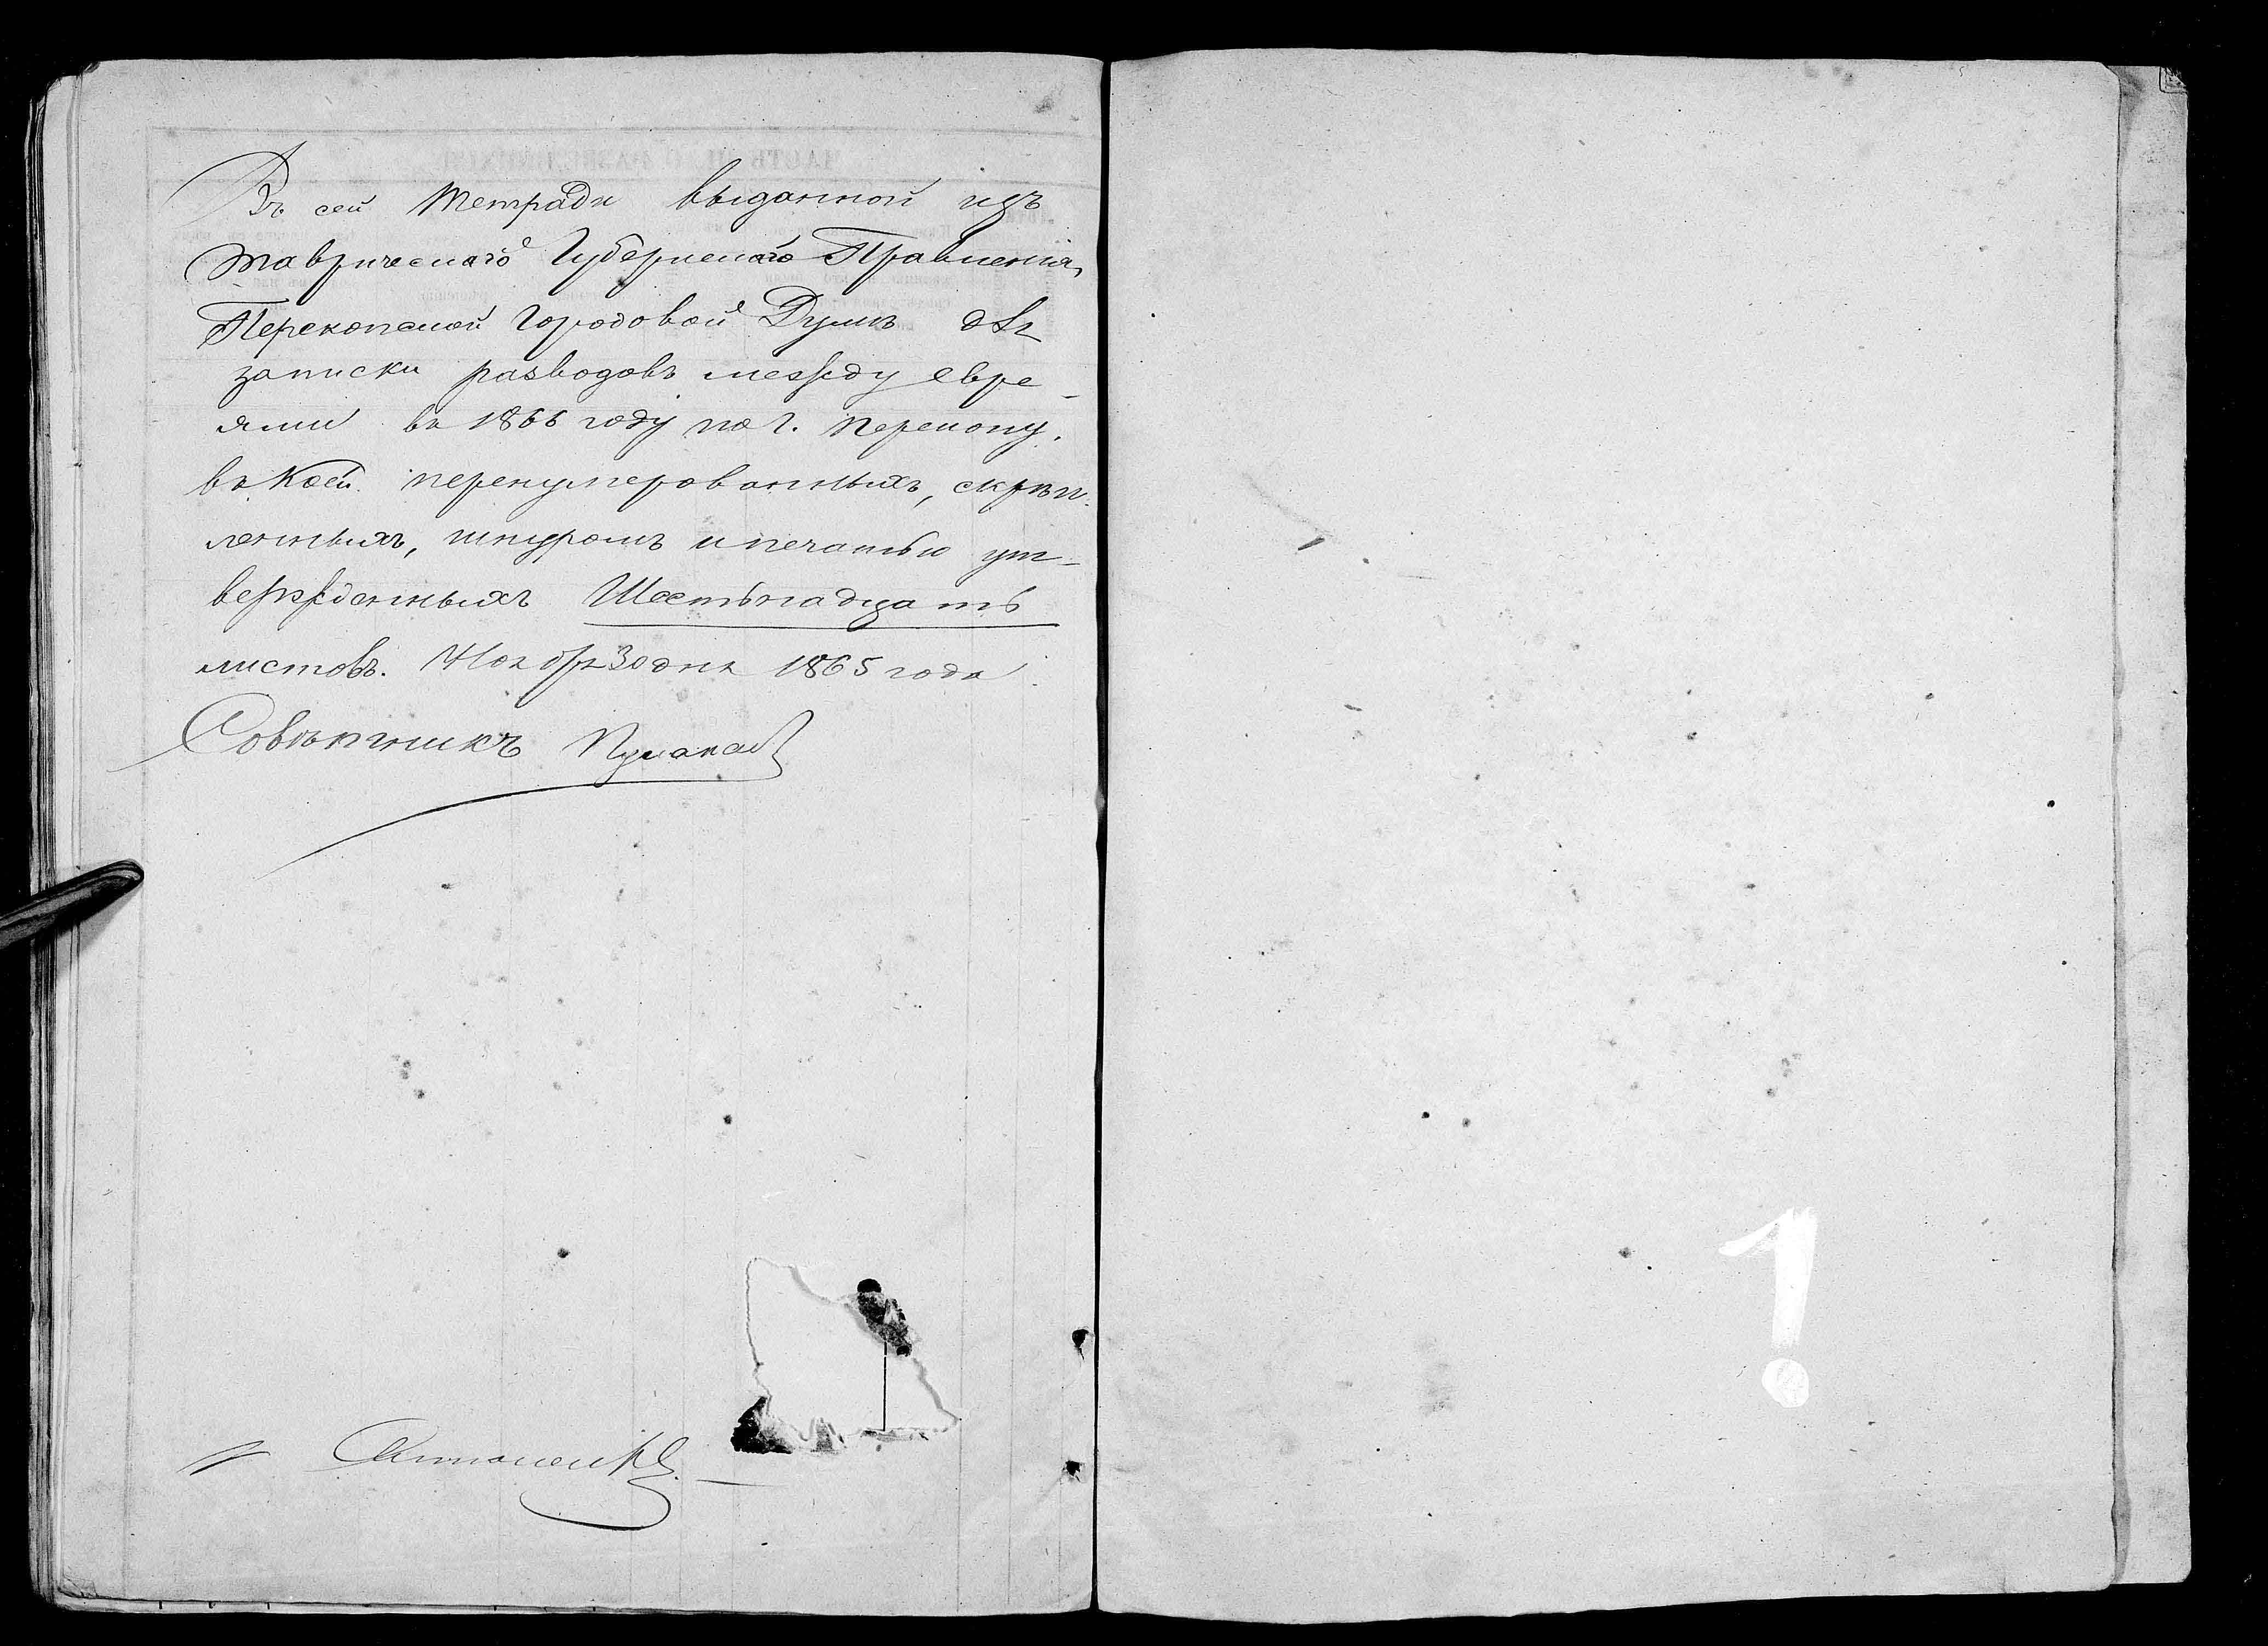 Въ сей тетради выданной изъ
Таврическаго Губернскаго Правленія,
Перекопской Городовой Думѣ для
записки разводовъ между евре-
ями въ 1866 году по г. Перекопу.
въ коей перенумерованныхъ, скрѣп-
ленныхъ, шнуромъ и печатью ут-
вержденныхъ Шестьнадцать
листовъ. Ноября 30 дня 1865 года
Совѣтникъ